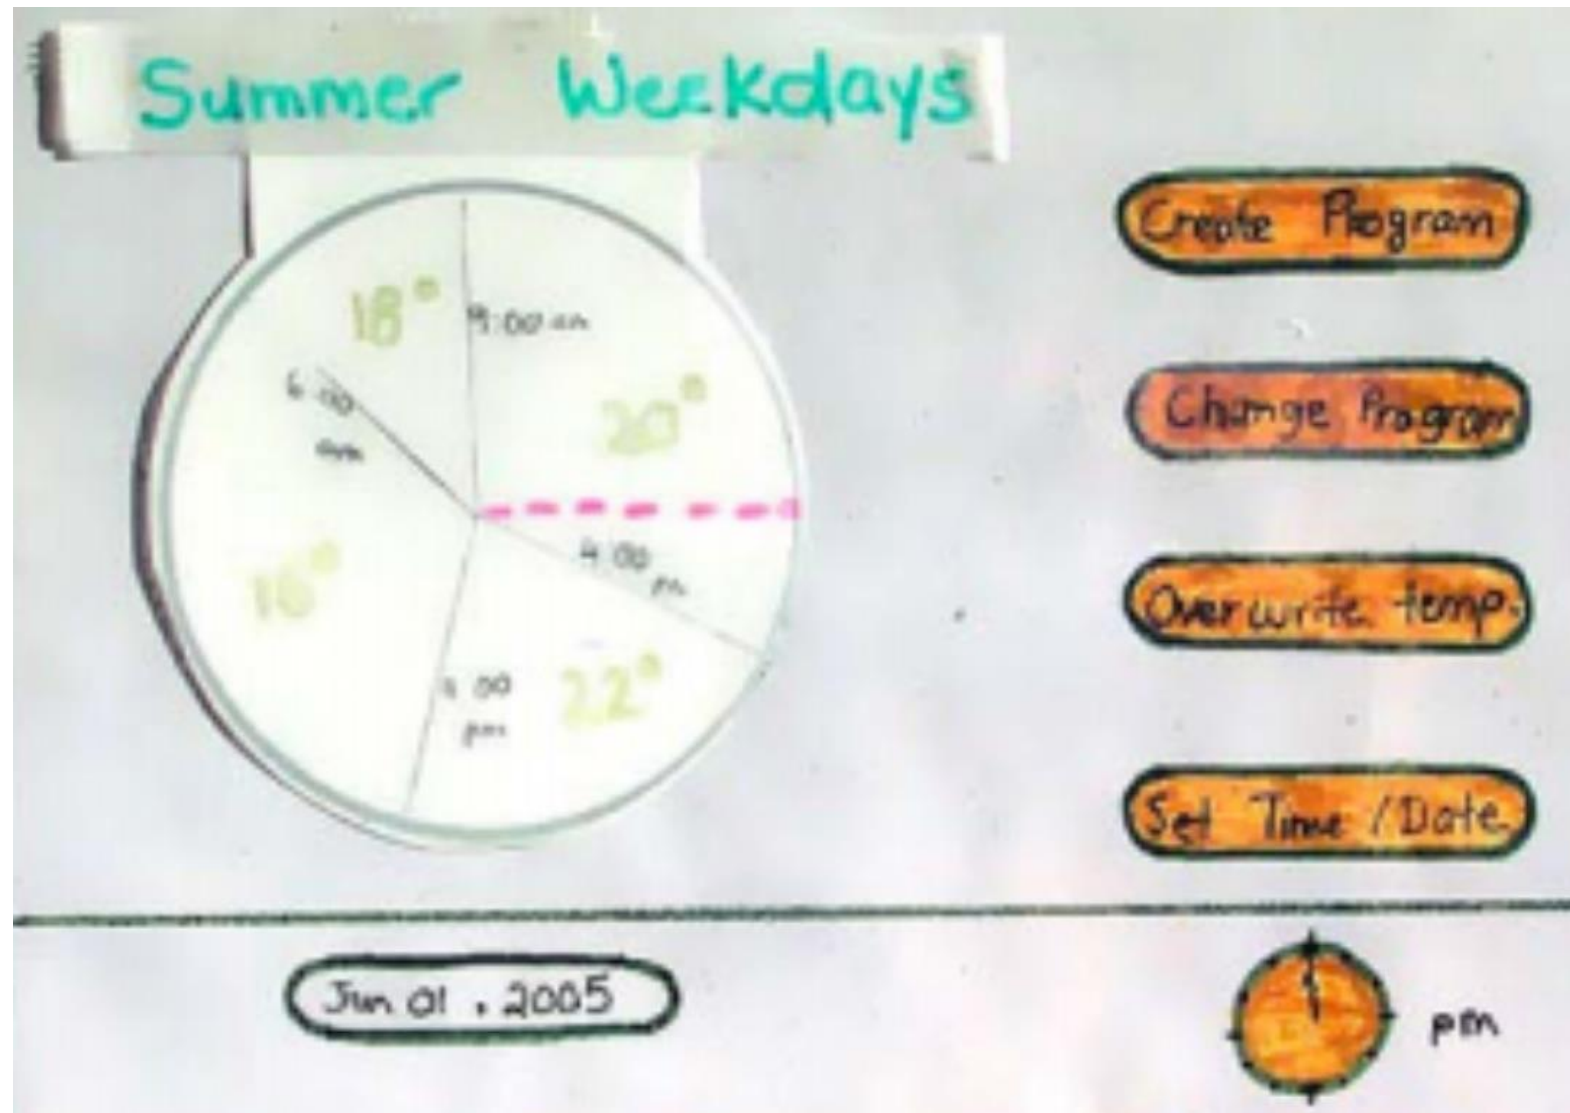 Summer Weekdays
18°
9:00 am
20°
6:00
am
4:00
pm
16°
22°
:00
pm
Create Program
Change Program
Overwrite temp.
Set Time / Date
Jun 01, 2005
pm